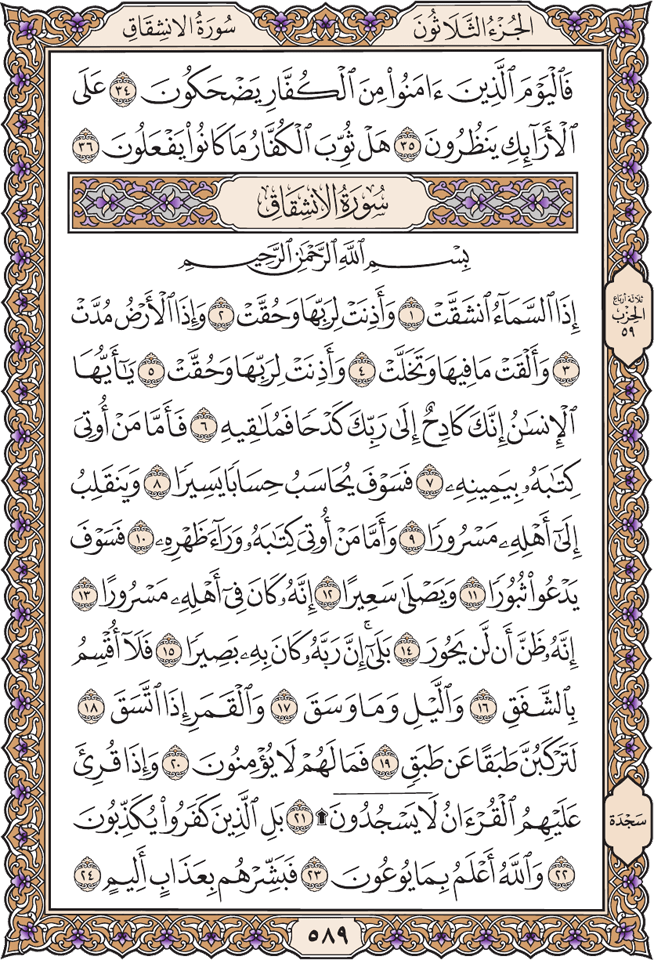 سُورَةُ الانشِقَاقِ
الجُزْءُ الثَّلَاثُونَ
فَٱلْيَوْمَ ٱلَّذِينَ ءَامَنُوا۟ مِنَ ٱلْكُفَّارِ يَضْحَكُونَ ٣٤ عَلَى
ٱلْأَرَآئِكِ يَنظُرُونَ ٣٥ هَلْ ثُوِّبَ ٱلْكُفَّارُ مَا كَانُوا۟ يَفْعَلُونَ ٣٦
سُورَةُ الانشِقَاقِ
بِسْمِ ٱللَّهِ ٱلرَّحْمَٰنِ ٱلرَّحِيمِ
إِذَا ٱلسَّمَآءُ ٱنشَقَّتْ ١ وَأَذِنَتْ لِرَبِّهَا وَحُقَّتْ ٢ وَإِذَا ٱلْأَرْضُ مُدَّتْ
٣ وَأَلْقَتْ مَا فِيهَا وَتَخَلَّتْ ٤ وَأَذِنَتْ لِرَبِّهَا وَحُقَّتْ ٥ يَٰٓأَيُّهَا
ٱلْإِنسَٰنُ إِنَّكَ كَادِحٌ إِلَىٰ رَبِّكَ كَدْحًا فَمُلَٰقِيهِ ٦ فَأَمَّا مَنْ أُوتِىَ
كِتَٰبَهُۥ بِيَمِينِهِۦ ٧ فَسَوْفَ يُحَاسَبُ حِسَابًا يَسِيرًا ٨ وَيَنقَلِبُ
إِلَىٰٓ أَهْلِهِۦ مَسْرُورًا ٩ وَأَمَّا مَنْ أُوتِىَ كِتَٰبَهُۥ وَرَآءَ ظَهْرِهِۦ ١٠ فَسَوْفَ
يَدْعُوا۟ ثُبُورًا ١١ وَيَصْلَىٰ سَعِيرًا ١٢ إِنَّهُۥ كَانَ فِىٓ أَهْلِهِۦ مَسْرُورًا ١٣
إِنَّهُۥ ظَنَّ أَن لَّن يَحُورَ ١٤ بَلَىٰٓۚ إِنَّ رَبَّهُۥ كَانَ بِهِۦ بَصِيرًا ١٥ فَلَآ أُقْسِمُ
بِٱلشَّفَقِ ١٦ وَٱلَّيْلِ وَمَا وَسَقَ ١٧ وَٱلْقَمَرِ إِذَا ٱتَّسَقَ ١٨
لَتَرْكَبُنَّ طَبَقًا عَن طَبَقٍ ١٩ فَمَا لَهُمْ لَا يُؤْمِنُونَ ٢٠ وَإِذَا قُرِئَ
عَلَيْهِمُ ٱلْقُرْءَانُ لَا يَسْجُدُونَ ۩ ٢١ بَلِ ٱلَّذِينَ كَفَرُوا۟ يُكَذِّبُونَ
٢٢ وَٱللَّهُ أَعْلَمُ بِمَا يُوعُونَ ٢٣ فَبَشِّرْهُم بِعَذَابٍ أَلِيمٍ ٢٤
ثلاثة أرباع
الحزب
٥٩
سَجْدَة
٥٨٩